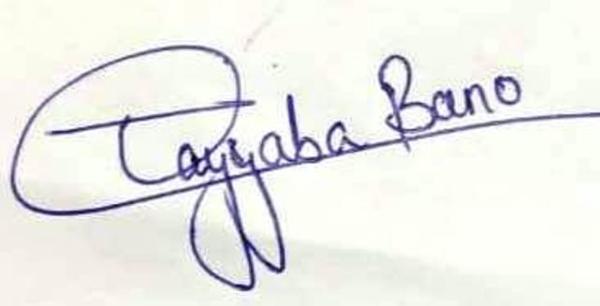 Tayyaba Bano